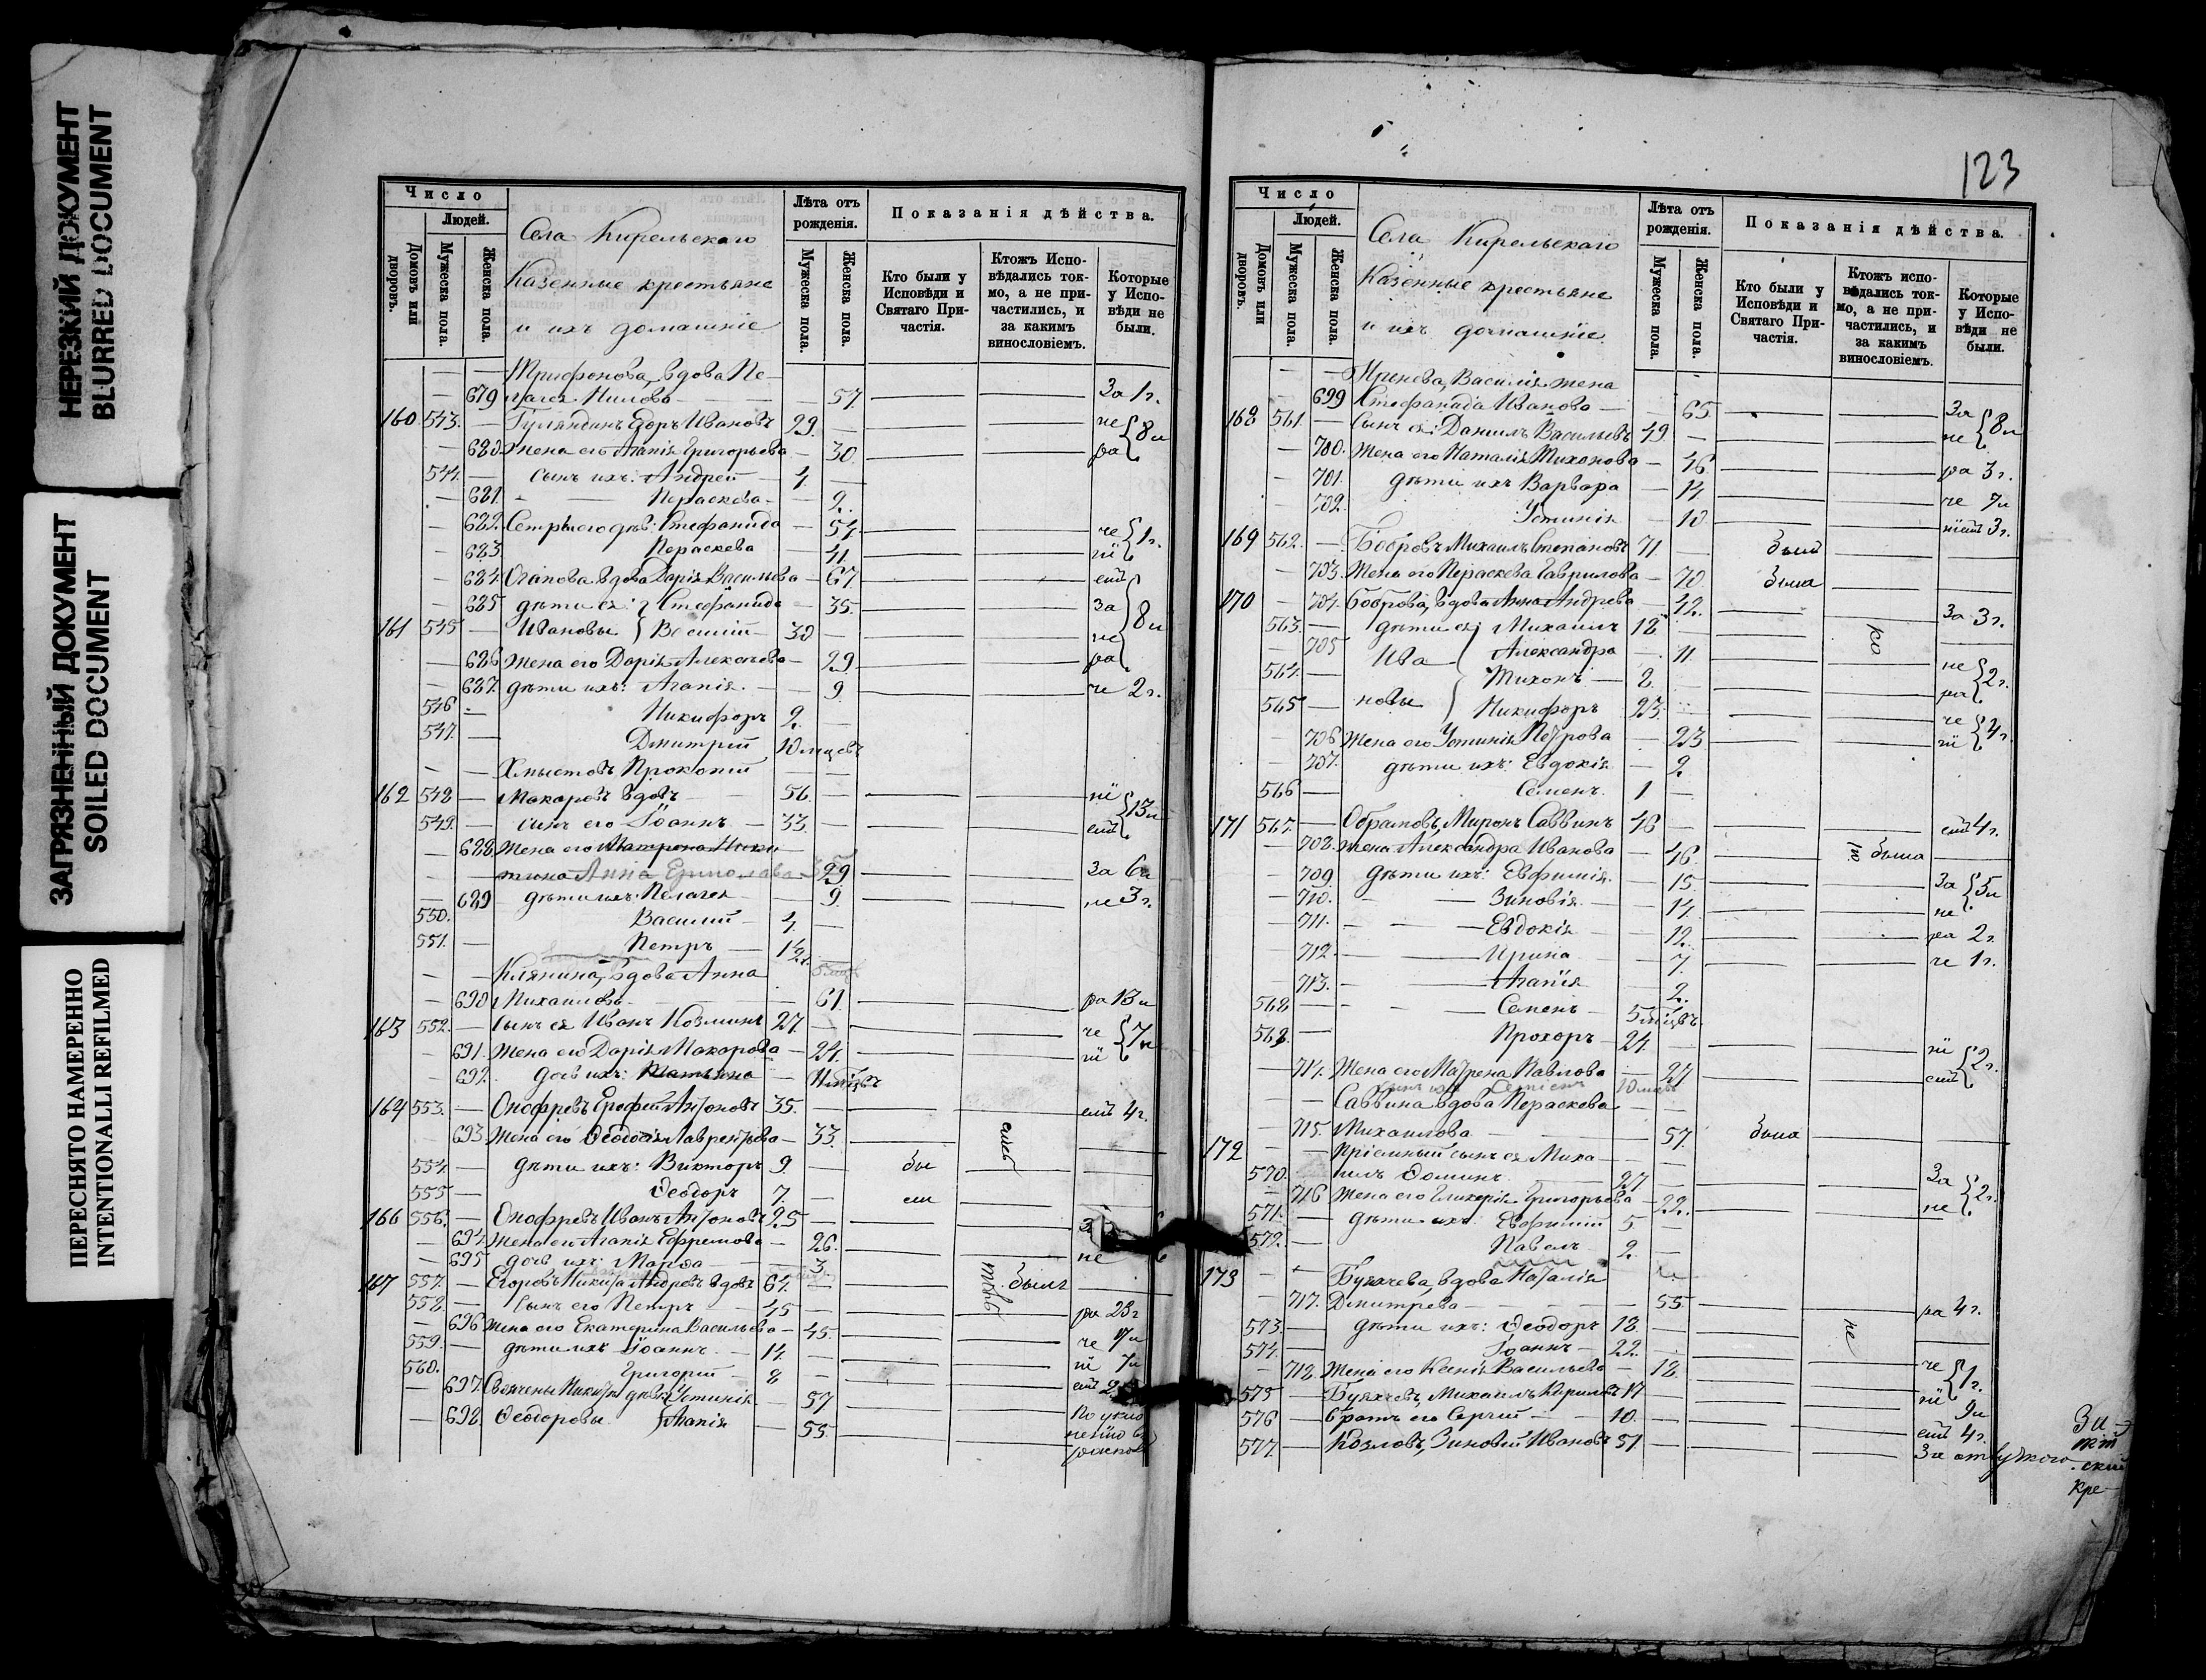 НЕРЕЗКИЙ ДОКУМЕНТ
BLURRED DOCUMENT
ЗАГРЯЗНЕННЫЙ ДОКУМЕНТ
SOILED DOCUMENT
ПЕРЕСНЯТО НАМЕРЕННО
INTENTIONALLI REFILMED
Число
Людей.
Домовъ или дворовъ.
Мужеска пола.
Женска пола.
Села Кирельскаго
Казенные крестьяне
и ихъ домашніе
Лѣта отъ рожденія.
Мужеска пола.
Женска пола.
Показанія дѣйства.
Кто были у Исповѣди и Святаго Причастія.
Ктожъ Исповѣдались токмо, а не причастились, и за какимъ винословіемъ.
Которые у Исповѣди не были.
Трифонова, вдова Пе-
679 лагея Нилова 57. За 1 г.
160. 543. Едоръ Ивановъ 29. не 8 и
680. Жена его Агапія Григорьева 30. ра
544. сынъ ихъ: Андрей 4
681. Параскева 2.
682. Сестры его дѣв: Стефанида 54. че 1 г.
683. Параскева 41. ні
684. вдова Дарія Васильева 67. емъ
685 дѣти ея: Стефанида 35. За 8 и
161 545 Ивановы Василій 30 не
686 Жена его Дарія Алексѣева 29. ра
687. дѣти ихъ: Агапія. 9. че 2 г.
546. Никифоръ 2.
547. Дмитрій 10 мцевъ
Хлыстовъ Прокопій
162 548 Макаровъ вдовъ 56. ні 13 и
549. сынъ его Іоаннъ 33. емъ
688 Жена его Матрона Ники
тина Анна 29 За 6 и
689 дѣти ихъ: Пелагея 9. не 3 г.
550. Василій 4.
551. Петръ 1½
вдова Анна
690 Михаилова 61. ра 13 и
163 552. Сынъ ея Иванъ Козминъ 27. че 7 и
691. Жена его Дарія Макарова 24. ні
692. дочь ихъ: Татьяна
164 553. Онофревъ Ерофей Антоновъ 35. емъ 4 г.
693. Жена его Ѳеодосія Лаврентьева 33.
554. дѣти ихъ: Викторъ 9. бы
555 Ѳеодоръ 7. ли
166 556. Онофревъ Иванъ Антоновъ 25 З
694. Жена его Агапія Ефремова 26. не
695 дочь ихъ: Марѳа 3.
167 557. Егоровъ Никита Андреевъ вдовъ 64. былъ
558. Сынъ его Петръ 45 ра 23 г
696 Жена его Екатерина Васильева 45. че 17 и
559. дѣти ихъ Іоаннъ 14. ні 7 и
560. Григорій 8 емъ
697. дѣвк Устинія 57
698. Ѳеодоровы Агапія 55.
123
Число
Людей.
Домовъ или дворовъ.
Мужеска пола.
Женска пола.
Села Кирельскаго
Казенные крестьяне
и ихъ домашніе
Лѣта отъ рожденія.
Мужеска пола.
Женска пола.
Показанія дѣйства.
Кто были у Исповѣди и Святаго Причастія.
Ктожъ исповѣдались токмо, а не причастились, и за какимъ винословіемъ.
Которые у Исповѣди не были.
Василія жена
699 Стефанида Иванова 65. За 8 и
168 561. Сынъ ея: Даніилъ Васильевъ 49. не
700. Жена его Наталія Тихонова 46. ра 3 г.
701. дѣти ихъ Варвара 14. че 7 и
702. Устинія 10. ніемъ 3 г.
169 562. Бобровъ Михаилъ Степановъ 71 былъ
703. Жена его Параскева Гаврилова 70. была
170 704. Боброва, вдова Анна Андрева 42. За 3 г.
563. дѣти ея Михаилъ 18.
705 Ива Александра 11. не 2 г.
564. Тихонъ 8. ра
565 новы Никифоръ 23. че 4 г.
706 Жена его Устинія Петрова 23 ні
707. дѣти ихъ: Евдокія 2.
566 Семенъ. 1
171 567. Обрамовъ, Миронъ Саввинъ 46 емъ 4 г.
708. Жена Александра Иванова 46. была
709 дѣти ихъ: Евфимія. 15. За 5 и
710. Зиновія 14. не
711. Евдокія 12. ра 2 г.
712. Ирина 7. че 1 г.
713. Агапія 2.
568 Семенъ 5 мѣцвъ.
569. Прохоръ 24. ні 2 г.
714. Жена его Матрена Павлова 27 емъ
сынъ ихъ Семенъ 10 мцвъ
Саввина вдова Параскева
715. Михаилова 57. была
172 Пріемный сынъ ея Миха
570. илъ Ѳоминъ 27 За 2 г.
716 Жена его Гликерія Григорьева 22. не
571. дѣти ихъ Евфимій 5.
572. Павелъ 2.
173 вдова Наталія
717. Дмитрева 55. ра 4 г.
573. дѣти ихъ: Ѳеодоръ 18.
574. Іоаннъ 22. че 1 г.
718. Жена его Ксенія Васильева 18. ні
575 Михаилъ Кириловъ 17 9 и
576 братъ его Сергій 10. емъ 4 г.
577. Козловъ, Зиновій Ивановъ 51.